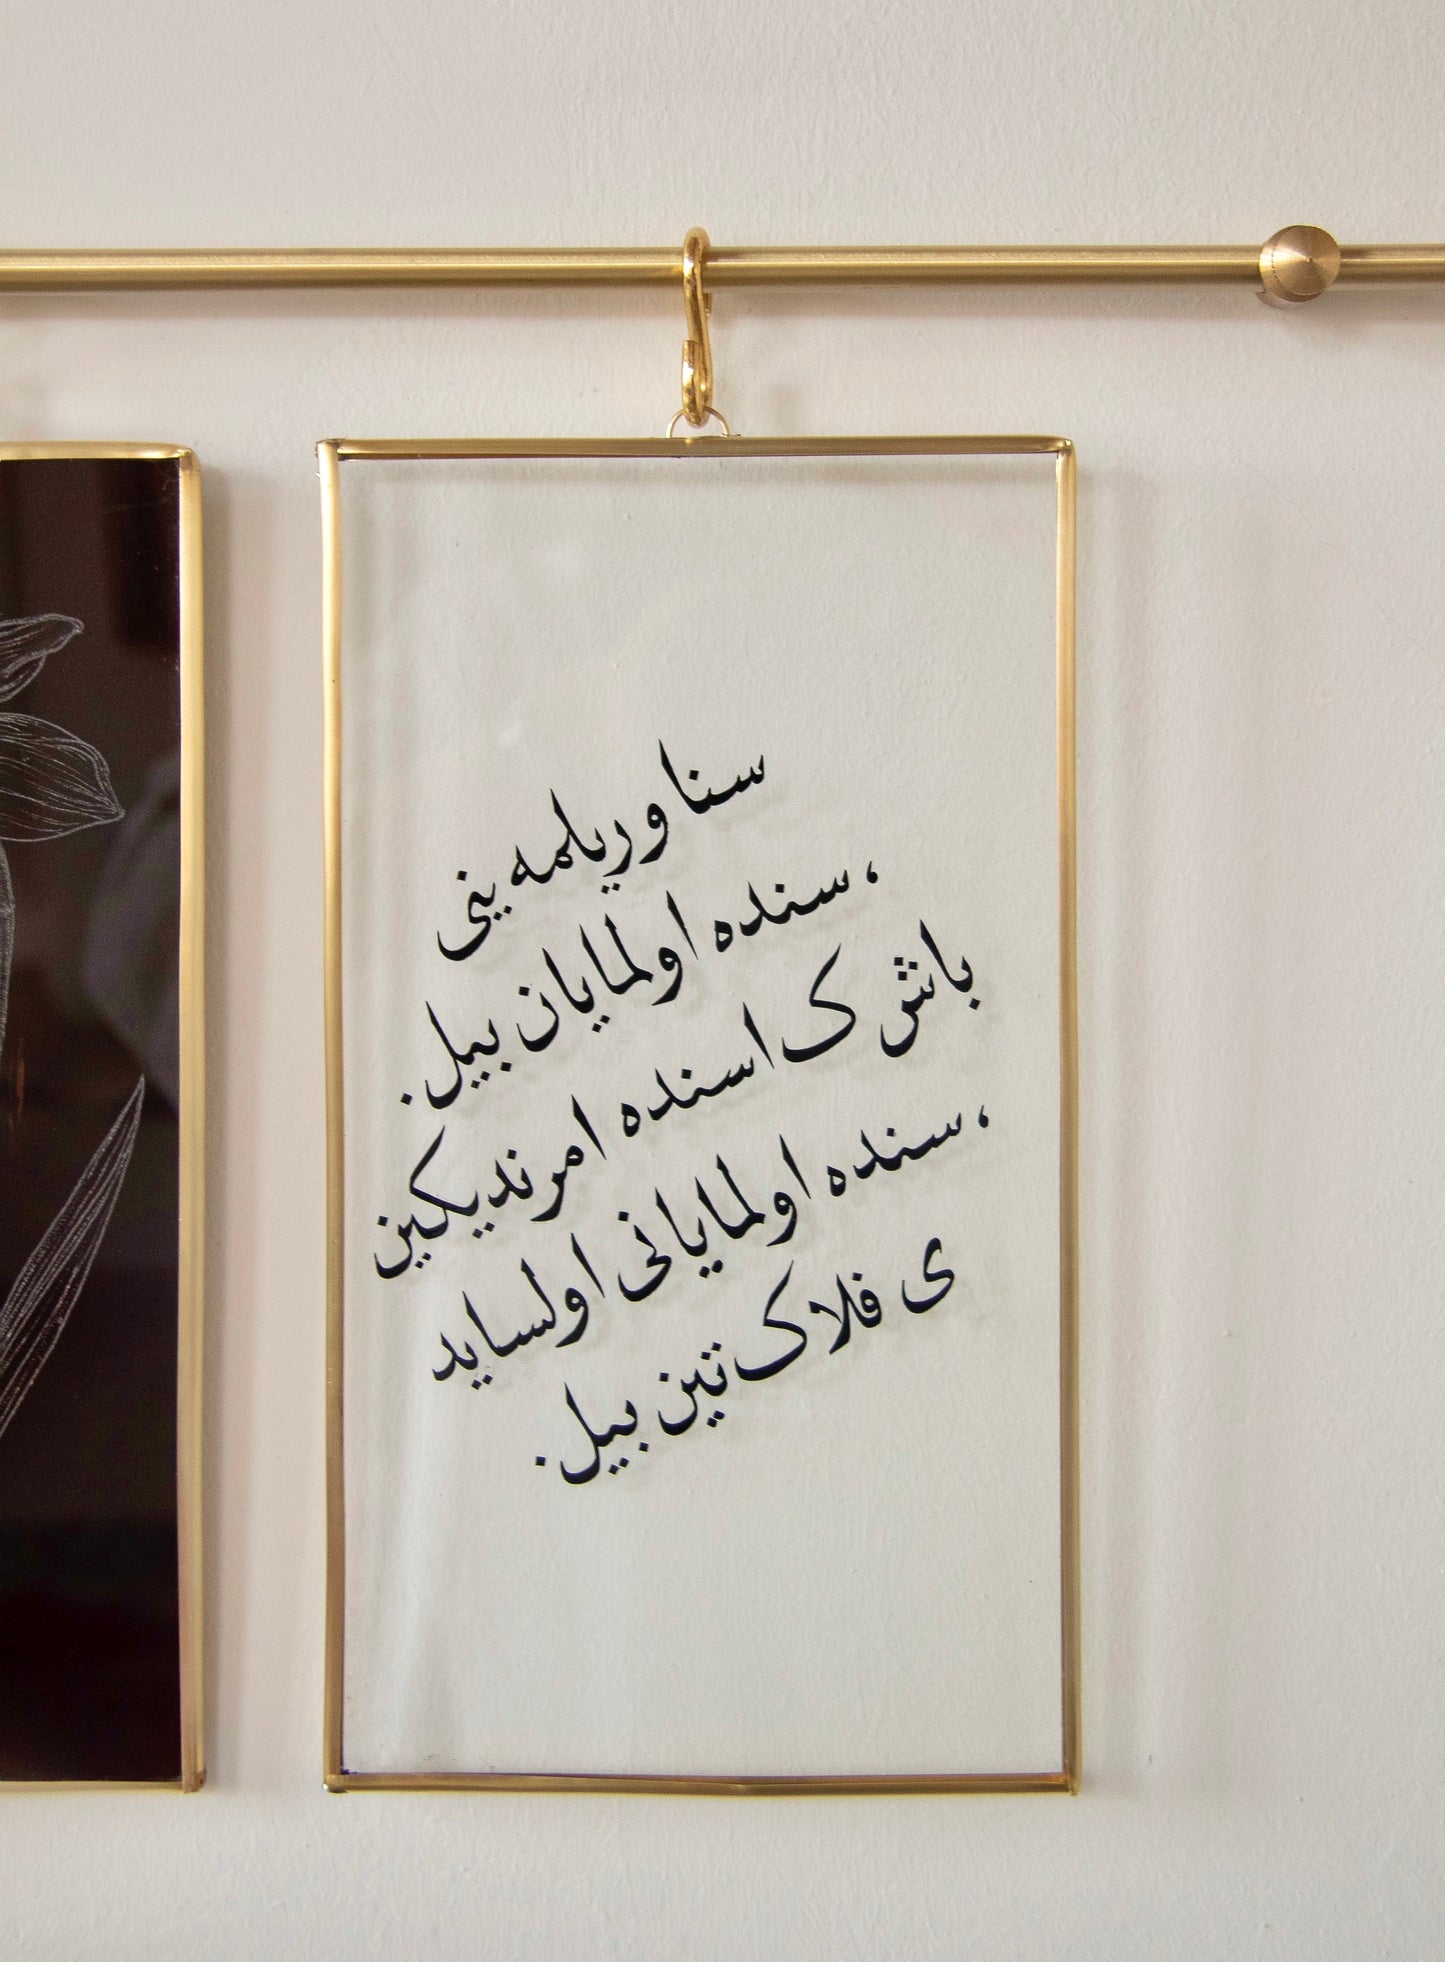 سنا وريلمه ينى
،سنده اولمايان بيل.
باش ک اسنده امرنديكين
،سنده اولمايانى اولسايد
ى فلاک تين بيل.